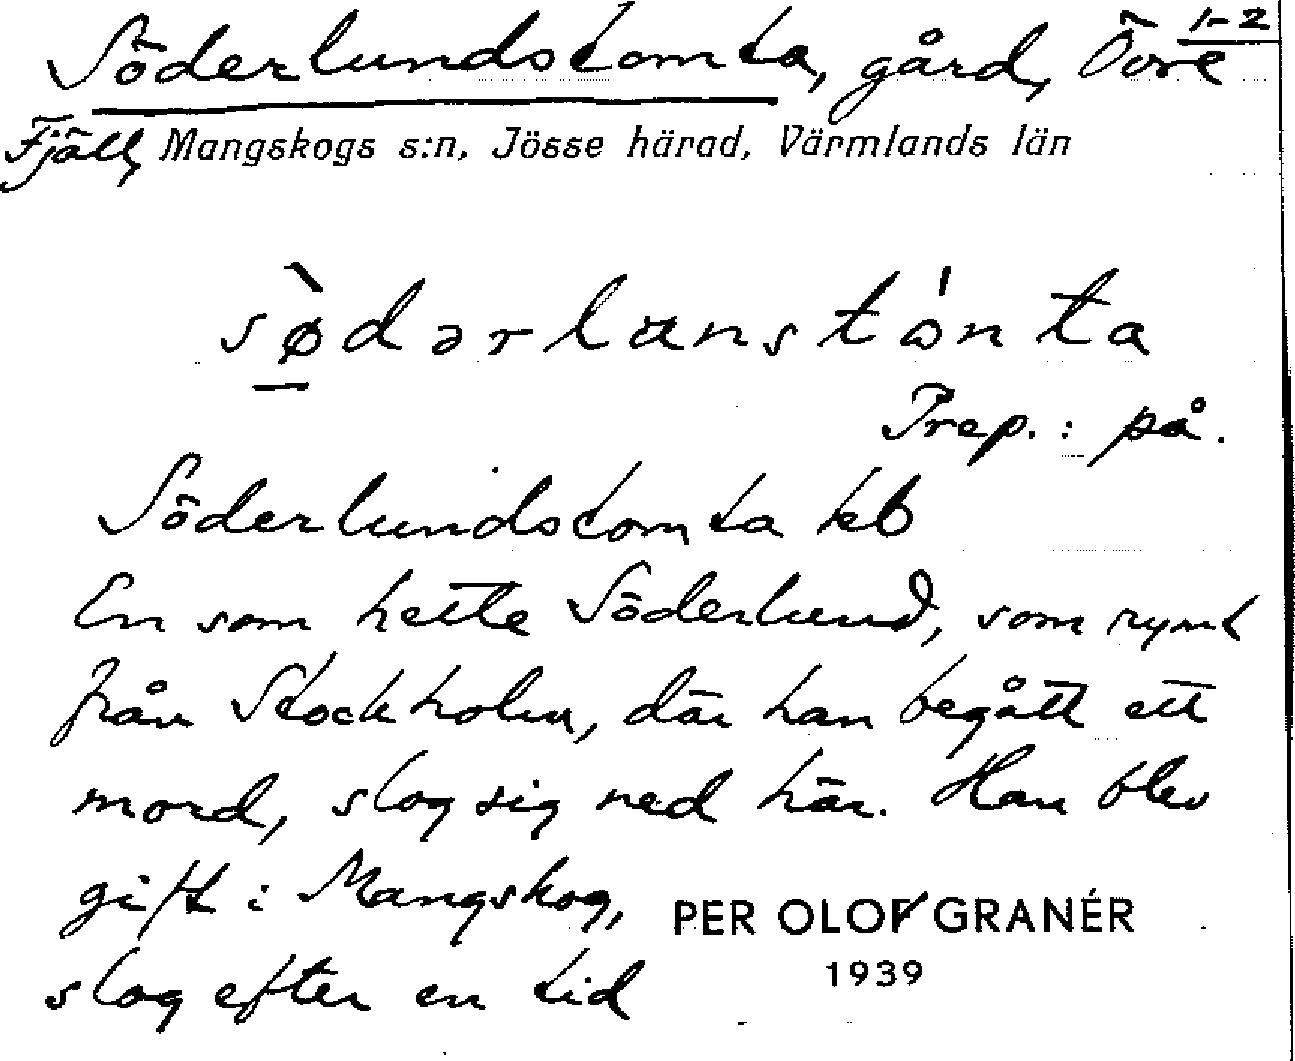 1-2
Söderlundstomta, gård, Övre
Fjäll, Mangskogs s:n, Jösse härad, Värmlands län
sø̀dərlɯnstɔ́nta
Prep.: på.
Söderlundstomta kb
En som hette Söderlund, som rymt
från Stockholm, där han begått ett
mord, slog sig ned här. Han blev
gift i Mangskog,
slog efter en tid
PER OLOF GRANÉR
1939